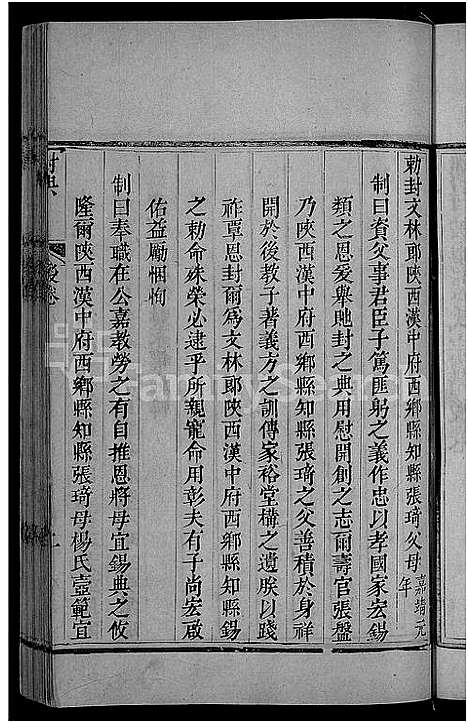 勅封文林郎陝西漢中府西鄉縣知縣張琦父母嘉靖元年
制曰資父事君臣子篤匪躬之義作忠以孝國家宏錫
類之恩爰舉貤封之典用慰開創之志爾壽官張盤
乃陝西漢中府西鄉縣知縣張琦之父善積於身祥
開於後教子著義方之訓傳家裕堂構之遺朕以踐
祚覃恩封爾爲文林郎陝西漢中府西鄉縣知縣錫
之勅命殊榮必逮乎所親寵命用彰夫有子尚宏啟
佑益勵悃恂
制曰奉職在公嘉教勞之有自推恩將母宜錫典之攸
隆爾陝西漢中府西鄉縣知縣張琦母楊氏壼範宜
封典
後卷
上